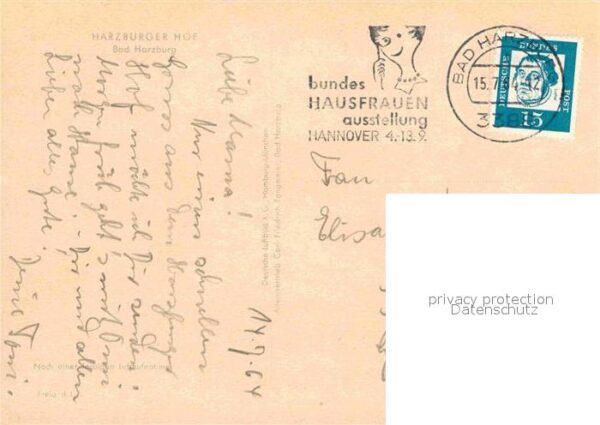 HARZBURGER HOF
Bad Harzburg
Liebe Mama!
Nur einen schnellen
Gruss aus dem Harzburger
Hof möchte ich Dir senden!
Morgen früh geht's mit Omi
nach Hause! - Dir und allen
Lieben alles Gute!
Deine Toni.
14.7.64
Nach einer
Freig. d.
Deutsche Luftbild K.G. Hamburg
Carl Friedrich Fangmeier, Bad Harzburg
bundes
HAUSFRAUEN
ausstellung
HANNOVER 4.-13.9.
BAD HARZ
15.7.64-12
338
DEUTSCHE
BUNDES
POST
15
Frau
Elisa
privacy protection
Datenschutz